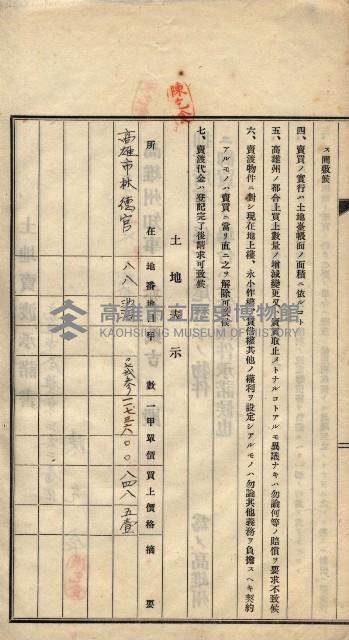 ス間敷候
四、賣買ノ實行ハ土地臺帳面ノ面積ニ依ルコト
五、高雄州ノ都合上買上數量ノ増減變更又ハ賣買取止メトナルコトアルモ異議ナキハ勿論何等ノ賠償ヲ要求不致候
六、賣渡物件ニ對シ現在地上權、永小作權、賃借權其他ノ權利ヲ設定シアルモノハ勿論其他義務ヲ負擔スヘキ契約
アルモノハ賣買ニ當リ直ニ之ヲ解除可致候
七、賣渡代金ハ登記完了後請求可致候
土地表示
所在 地番 地目 甲數 一甲單價 買上價格 摘要
高雄市林德官 八八 池
高雄市立歷史博物館
KAOHSIUNG MUSEUM OF HISTORY